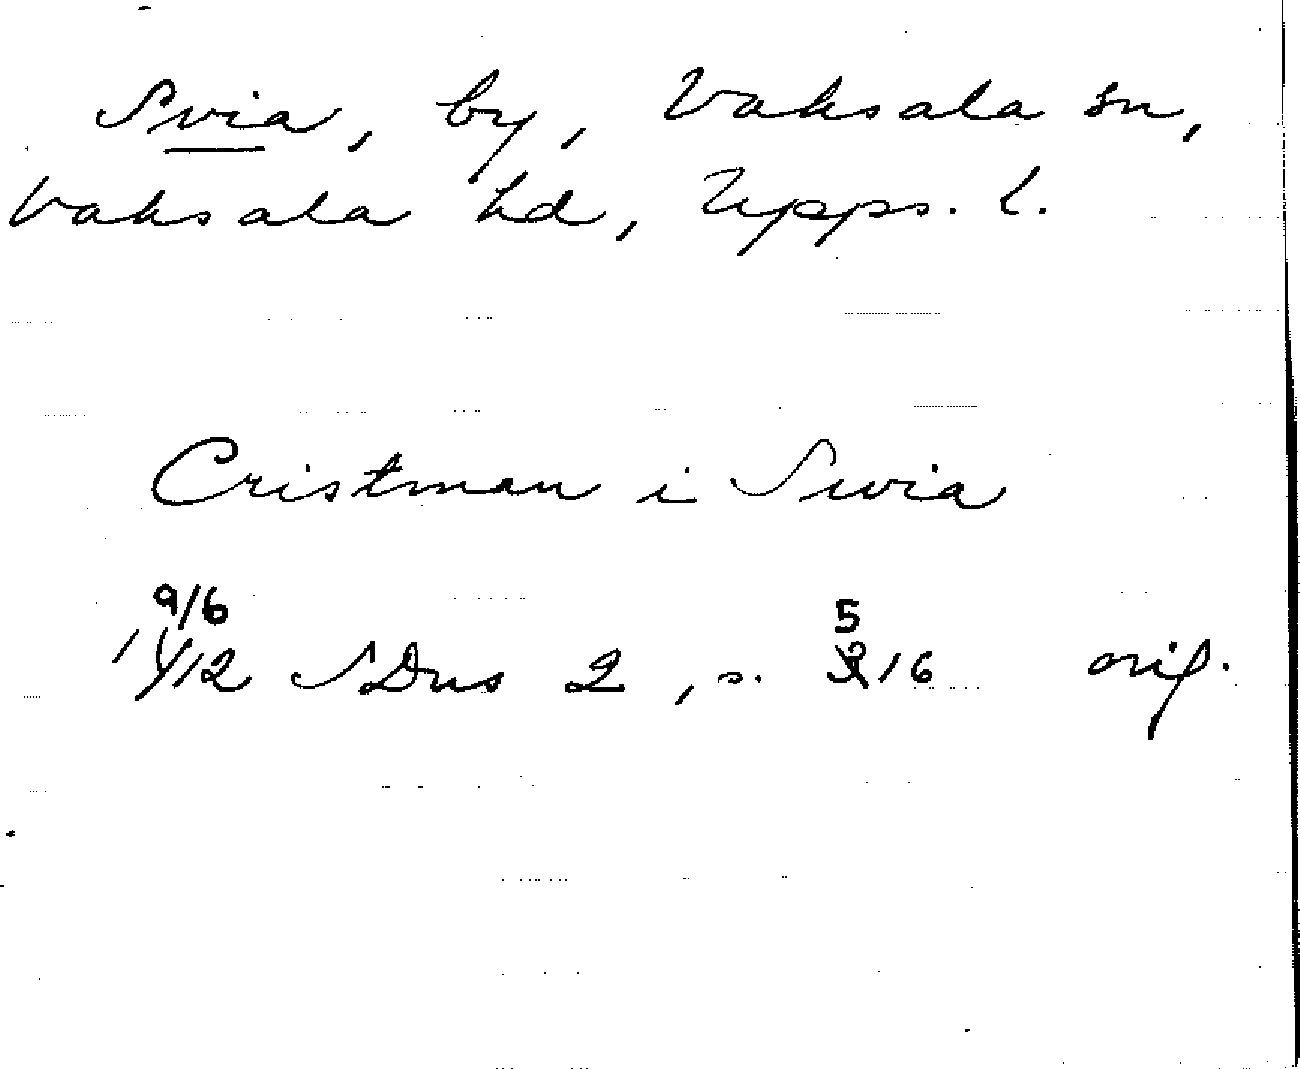 Svia, by, Vaksala sn,
Vaksala hd, Upps. l.
Cristman i Swia
9/6
1/12 SDns 2, s. 216 orig.
5